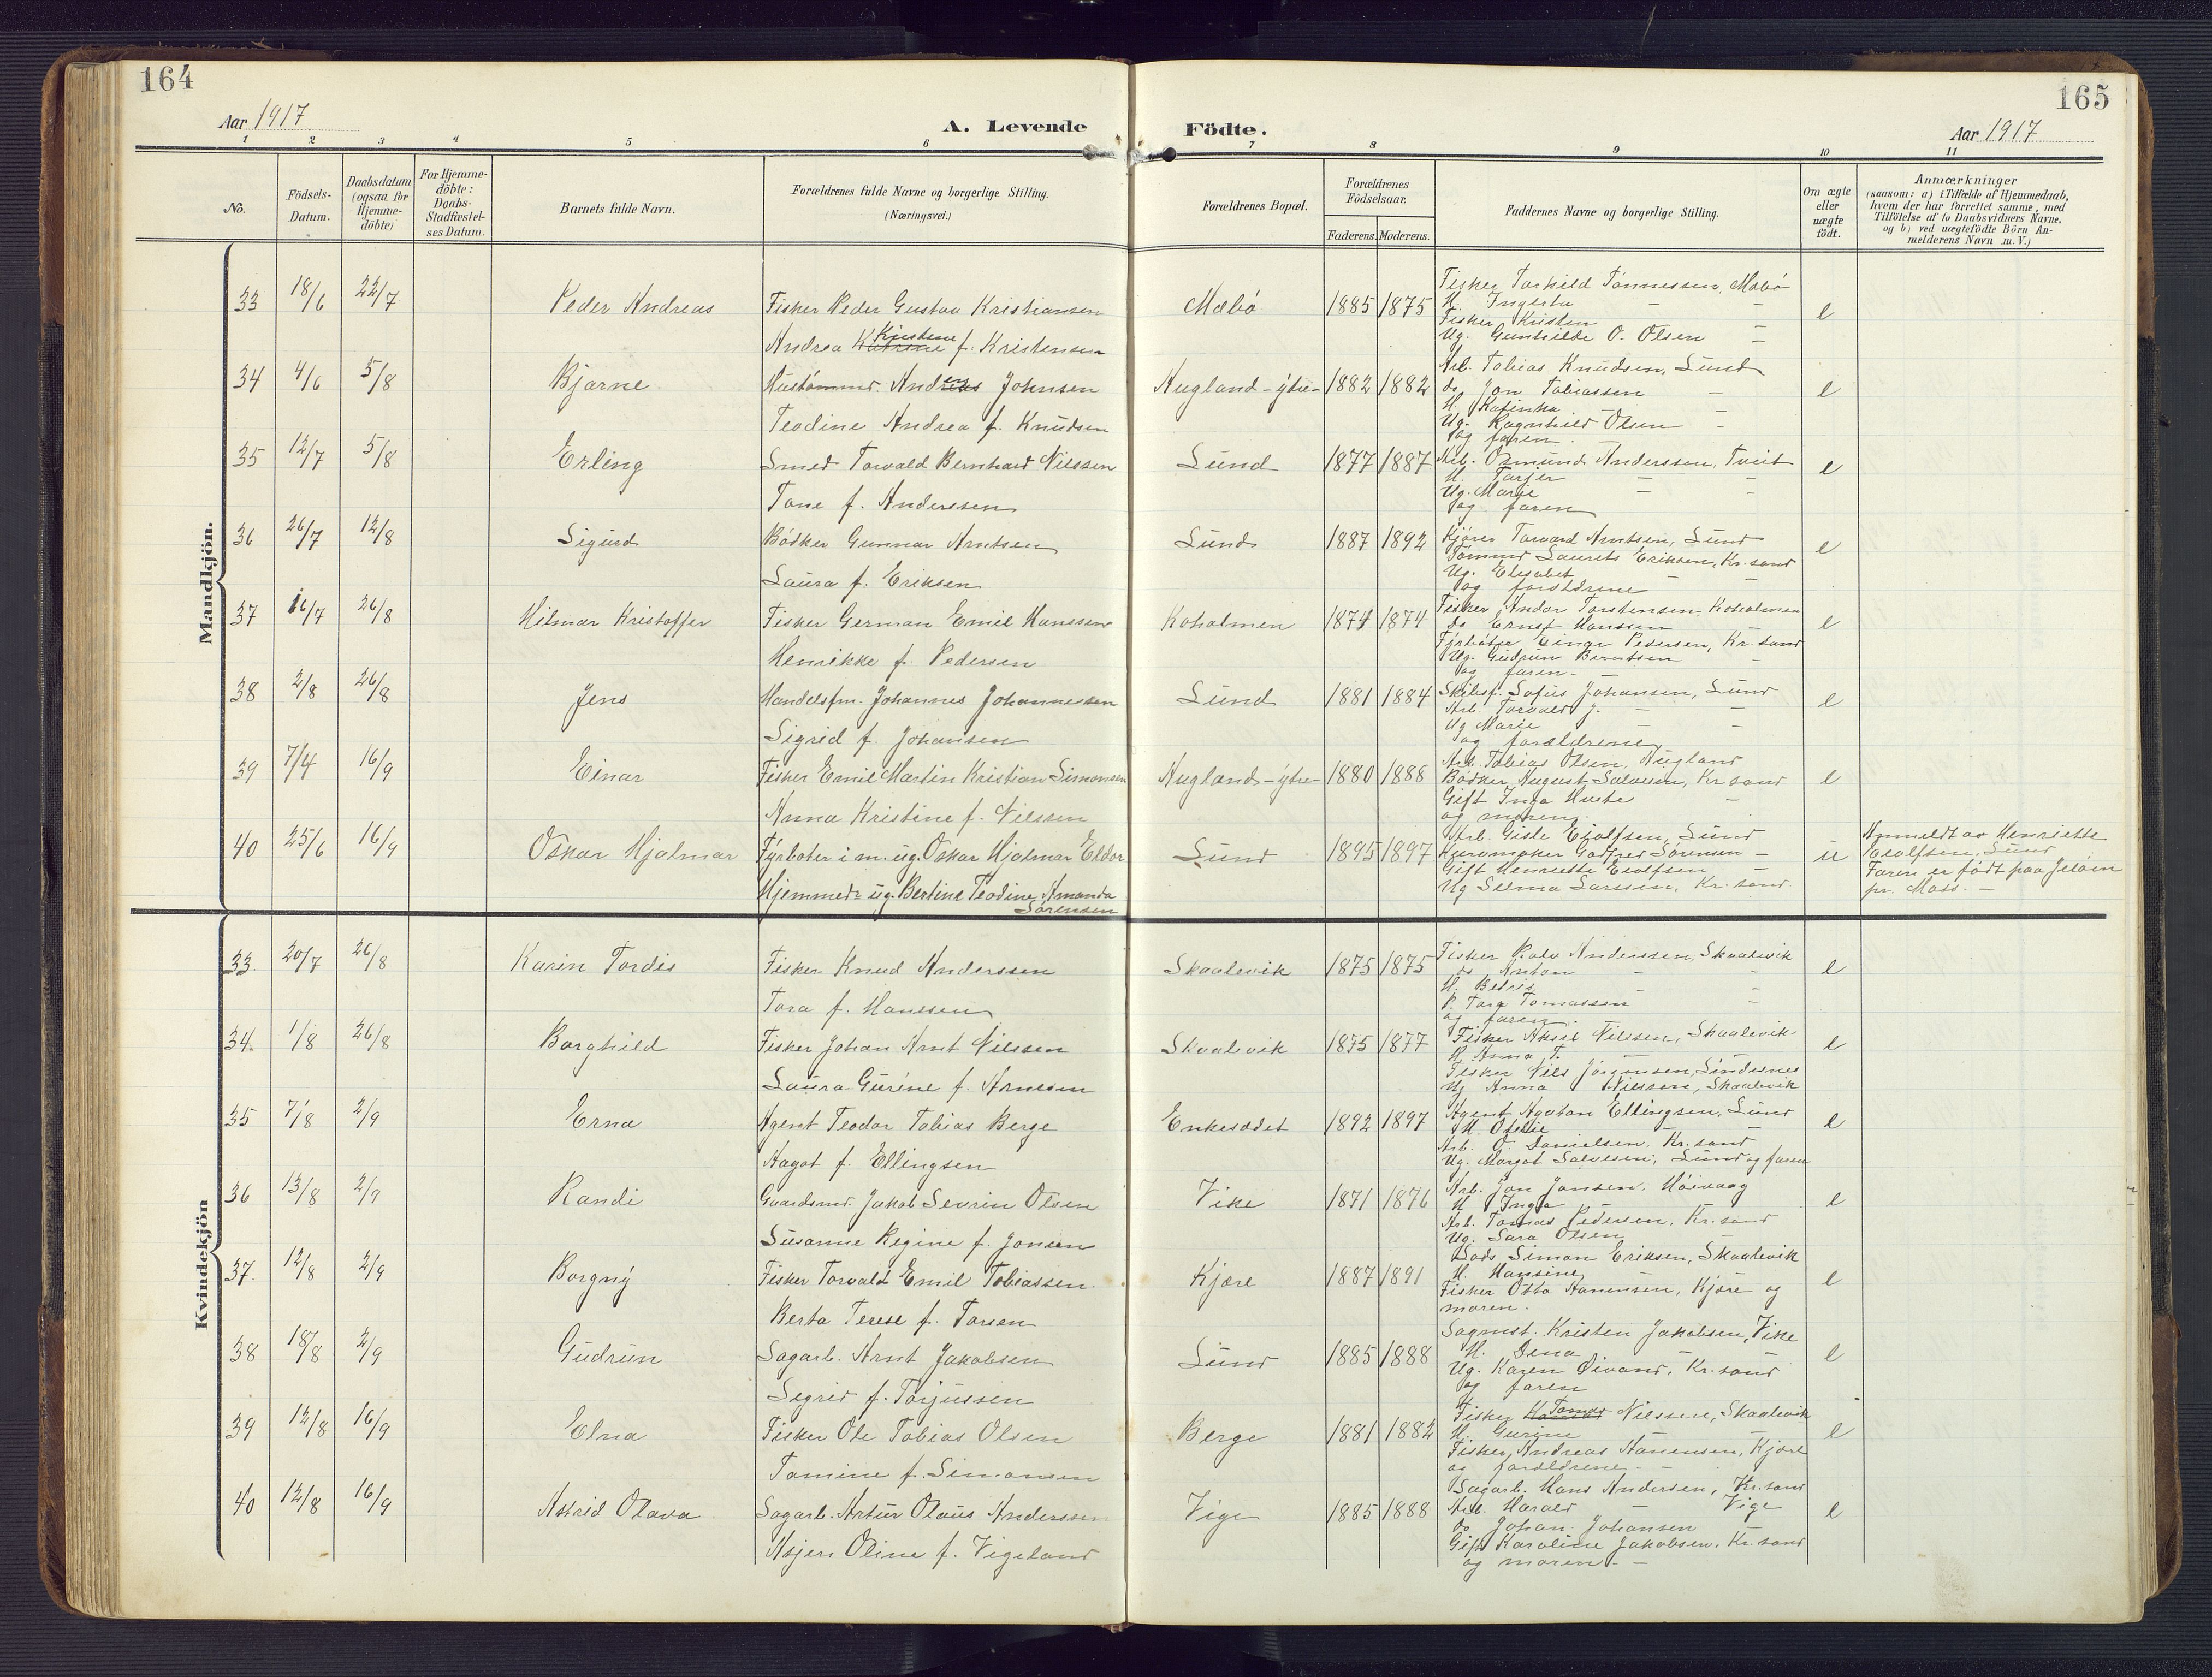 164
165
Aar 1917
A. Levende
Födte.
Aar 1917
1 2 3 4 5 6 7 8 9 10 11
No.
Födsels-Datum.
Daabsdatum (ogsaa for Hjemme-döbte)
For Hjemme-döbte: Daabs-Stadfæstel-ses Datum.
Barnets fulde Navn.
Forældrenes fulde Navne og borgerlige Stilling.
(Næringsvei.)
Forældrenes Bopæl.
Forældrenes Födselsaar.
Faderens. Moderens.
Faddernes Navne og borgerlige Stilling.
Om ægte eller uægte födt.
Anmærkninger
(saasom: a) i Tilfælde af Hjemmedaab,
hvem der har forrettet samme, med
Tilföielse af to Daabsvidners Navne,
og b) ved uægtefödte Börn An-
melderens Navn m. V.)
Mandkjön.
33 18/6 22/7 Peder Andreas Fisker Peder Gustav Kristiansen Mæbö 1885 1875 e
Andrea Katrine Kristine f. Kristensen
Fisker Torkild Tönnessen, Mæbö
H. Ingerta – –
Fisker Kristen –
Ug. Gunhilde O. Olsen –
34 4/6 5/8 Bjarne Hustömmr. Andreas Johnsen Augland-ytre- 1882 1882 e
Teodine Andrea f. Knudsen
Arb. Tobias Knudsen, Lund
do Jon Tobiassen –
H. Katinka – –
Ug. Ragnhild Olsen –
og faren.
35 12/7 5/8 Erling Smed Torvald Bernhard Nilssen Lund 1877 1887 e
Tone f. Anderssen
Arb. Osmund Anderssen, Tveit
H. Tarjer – –
Ug. Marie – –
og faren
36 26/7 12/8 Sigurd Bödker Gunnar Arntsen Lund 1887 1892 e
Laura f. Eriksen
Kjörer Torvard Arntsen, Lund
Tömmr Laurits Eriksen, Kr.sand
Ug. Elisabet – –
og forældrene
37 16/7 26/8 Hilmar Kristoffer Fisker German Emil Hanssen Koholmen 1874 1874 e
Henrikke f. Pedersen
Fisker Andor Torstensen Koholmen
do Ernst Hanssen –
Fyrböter Einar Pedersen, Kr.sand
Ug. Gudrun Berntsen –
og faren. –
38 2/8 26/8 Jens Handelsfm. Johannes Johannessen Lund 1881 1884 e
Sigrid f. Johansen
Skibsf. Sofus Johansen, Lund
Arb. Torvald J. – –
Ug Marie – –
og forældrene
39 7/4 16/9 Einar Fisker Emil Martin Kristian Simonsen Augland-ytre- 1880 1888 e
Anna Kristine f. Nilssen
Arb. Tobias Olsen, Augland
Bödker August Salvesen, Kr sand
Gift Inga Hvete –
og moren.
40 25/6 16/9 Oskar Hjalmar Fyrböter i m. ug. Oskar Hjalmar Eldor Lund 1895 1897 u
Hjemmed= ug. Bertine Teodine Amanda
Sörensen
Arb. Gisle Eiolfsen, Lund
Kurvmaker Godfred Sörensen –
Gift Henriette Eiolfsen –
Ug Selma Larssen, Kr.sand.
Anmeldt av Henriette
Eiolfsen, Lund
Faren er födt paa Jelöien
pr. Moss. –
Kvindekjön
33. 20/7 26/8 Karin Tordis Fisker Knud Anderssen Skaalevik 1875 1875 e
Tora f. Hanssen
Fisker Rolv Anderssen, Skaalevik
do Anton – –
H. Betris – –
P. Tora Tomassen –
og faren.
34. 1/8 26/8 Borghild Fisker Johan Arnt Nilssen Skaalevik 1875 1877 e
Laura Gurine f. Arnesen
Fisker Aksel Nilssen, Skaalevik
H. Anna T. – –
Fisker Nils Jörgensen, Lindesnes
Ug Anna Nilssen, Skaalevik
35 7/8 2/9 Erna Agent Teodor Tobias Berge Enkesædet 1892 1897 e
Aagot f. Ellingsen
Agent Agaton Ellingsen, Lund
H. Ofelie – –
Arb. O. Danielsen, Kr.sand
Ug. Margot Salvesen, Lund og faren
36 13/8 2/9 Randi Gaardmr. Jakob Severin Olsen Vike 1871 1876 e
Susanne Regine f. Jonsen
Arb. Jon Jonsen, Höivaag
H Inga – –
Arb. Tomas Pedersen, Kr.sand
Ug. Sara Olsen –
37. 12/8 2/9 Borgny Fisker Torvald Emil Tobiassen Kjære 1887 1891 e
Berta Terese f. Torsen
Lods Simon Eriksen, Skaalevik
H. Hansine – –
Fisker Otto Aanensen, Kjære og
moren.
38 18/8 2/9 Gudrun Sagarb. Arnt Jakobsen Lund 1885 1888 e
Sigrid f. Torjussen
Sagmst. Kristen Jakobsen, Vike
H. Dena – –
Ug. Karen Öivand, Kr.sand
og faren
39 12/8 16/9 Elna Fisker Ole Tobias Olsen Berge 1881 1882 e
Tomine f. Simonsen
Fisker Tomas Nilssen, Skaalevik
H. Gurine – –
Fisker Andreas Aanensen, Kjære
og forældrene –
40 12/8 16/9 Astrid Olava Sagarb. Artur Olaus Anderssen Vige 1885 1888 e
Asjer Oline f. Vigeland
Sagarb. Hans Andersen, Kr.sand
Arb. Harald – Vige
do Johan Johansen –
Gift Karoline Jakobsen, Kr.sand
og moren. –